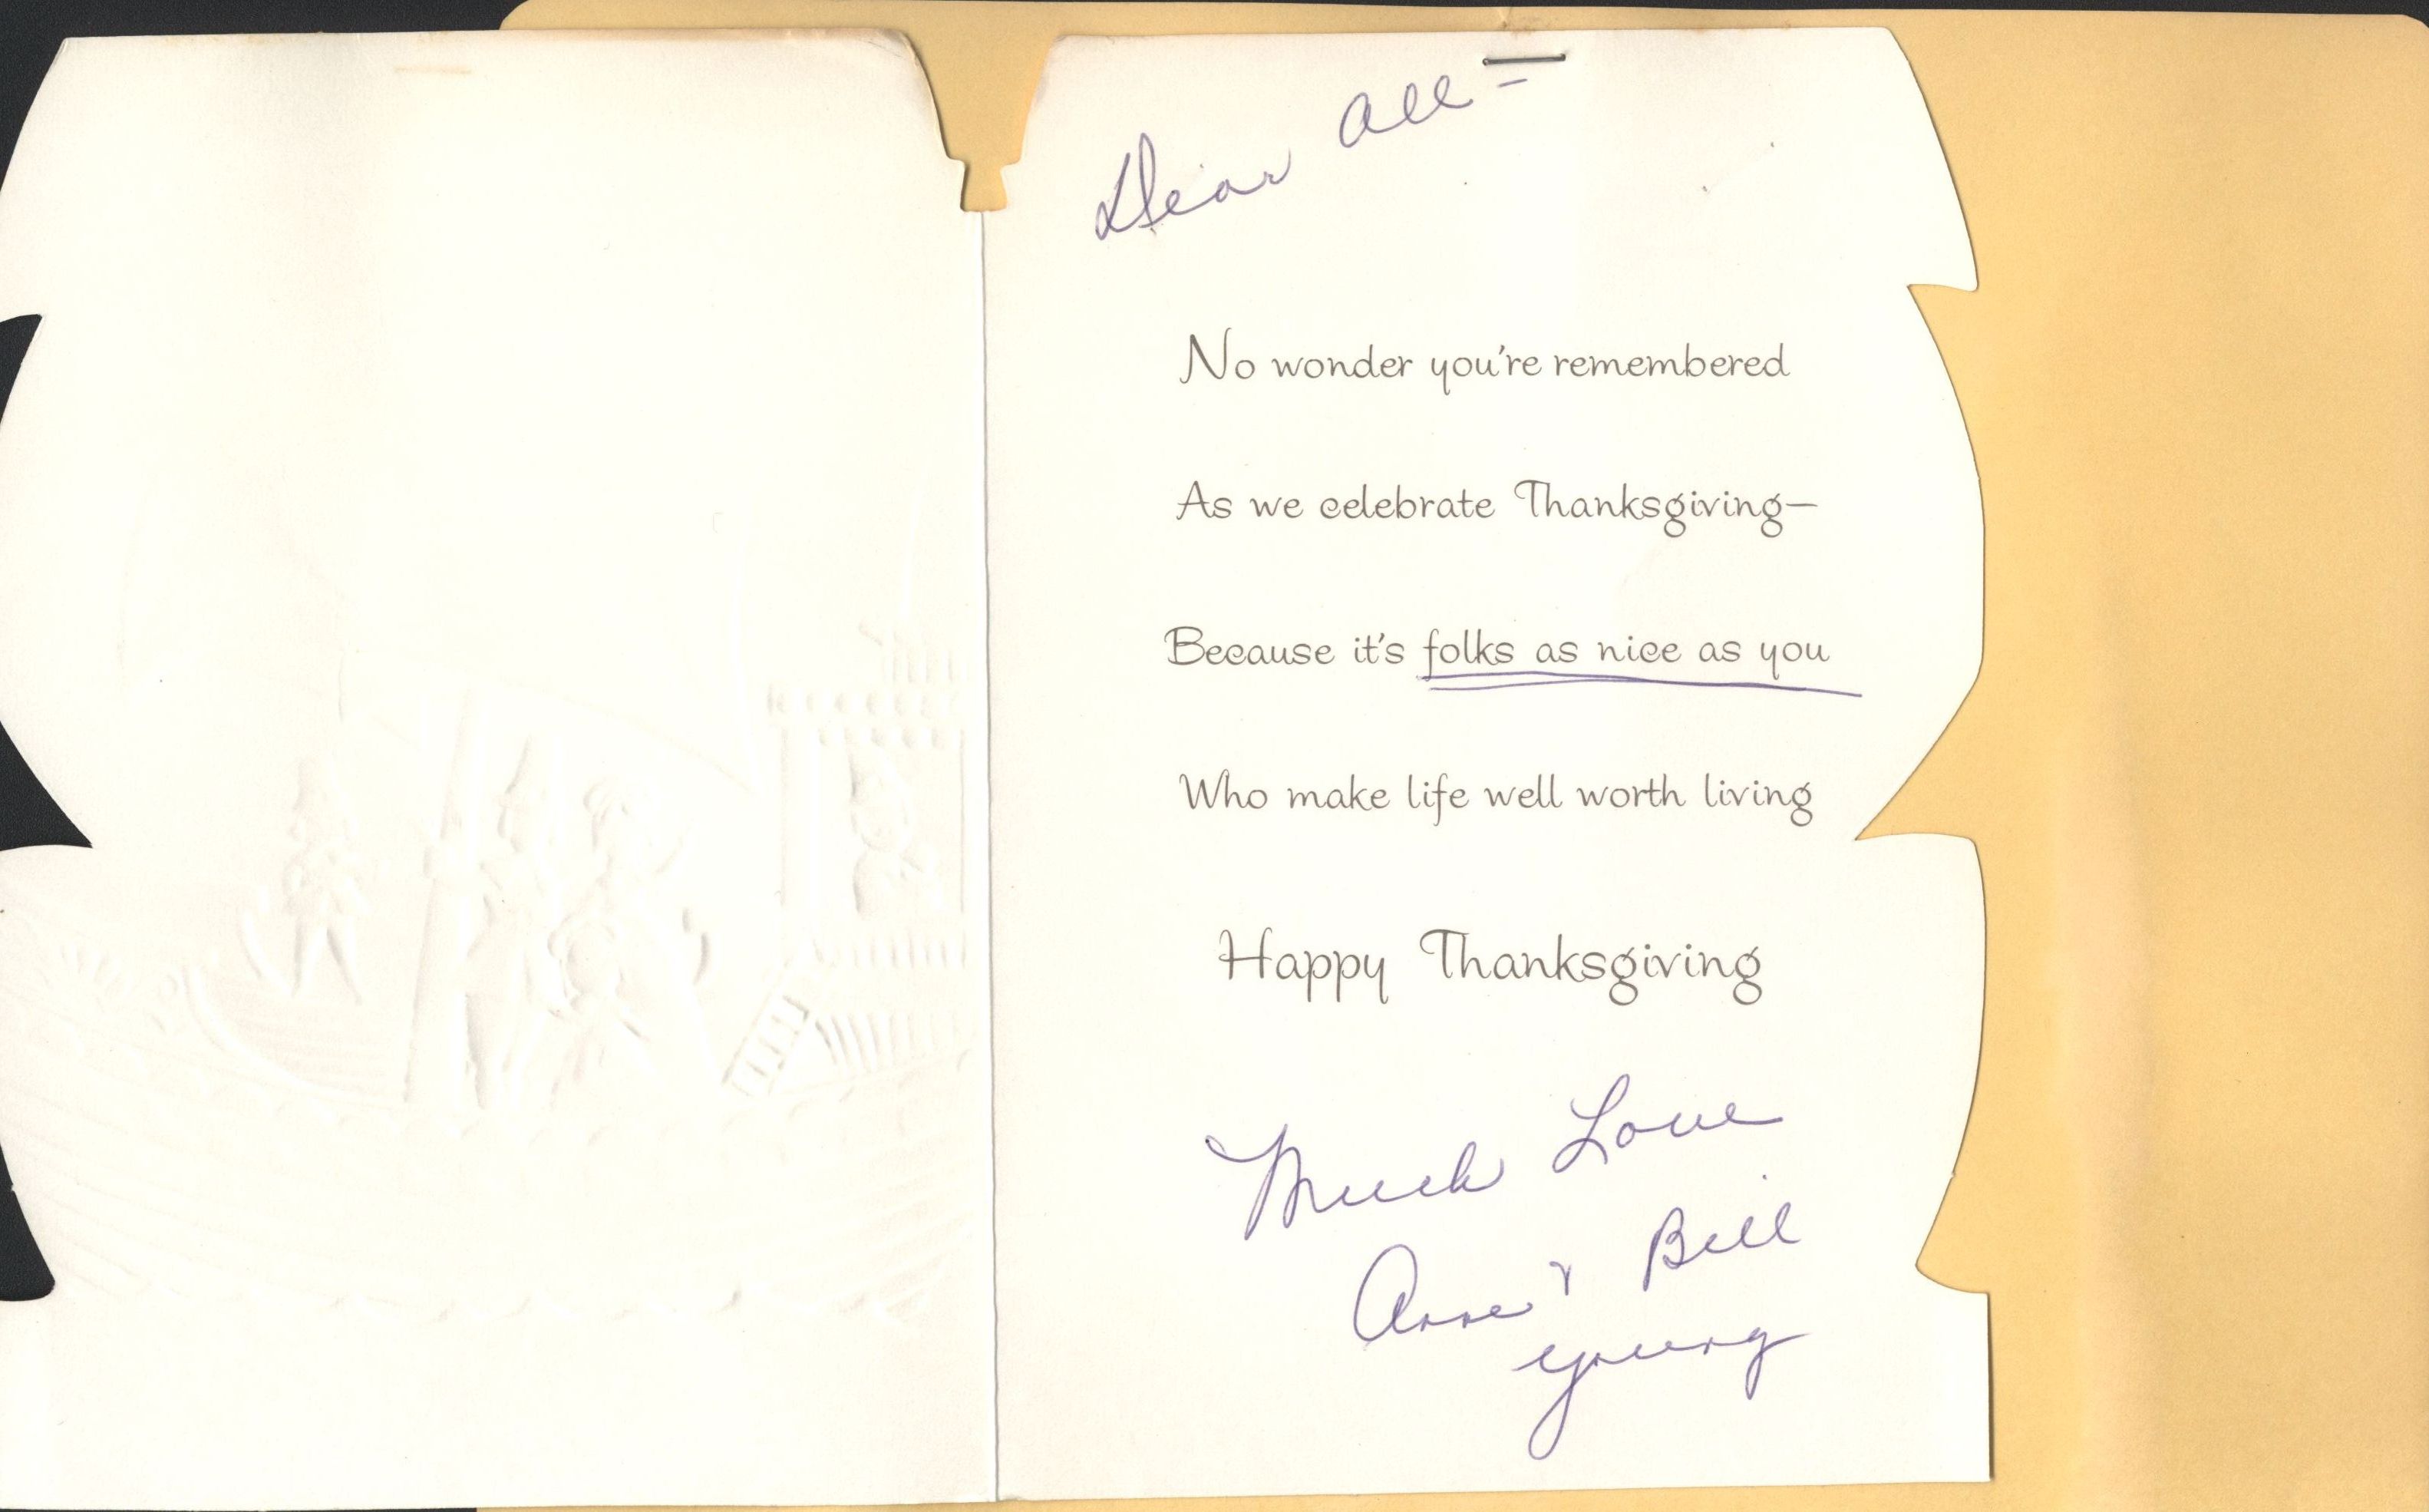 Dear All -
No wonder you're remembered
As we celebrate Thanksgiving—
Because it's folks as nice as you
Who make life well worth living
Happy Thanksgiving
Much Love
Anne & Bill
Young